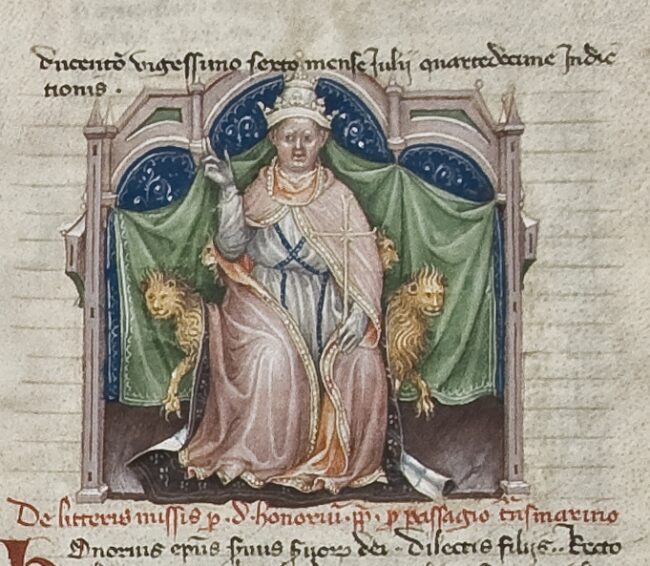 ducentõ vigessimo sexto mense Julij quartedecime Indic
tionis .
De litteris missis p . d . honoriũ . pp̃ . p passagio t̃nsmarino
Onorius ep̃us ẜuus ẜuorꝝ dei .. Dilectis filijs .. Recto